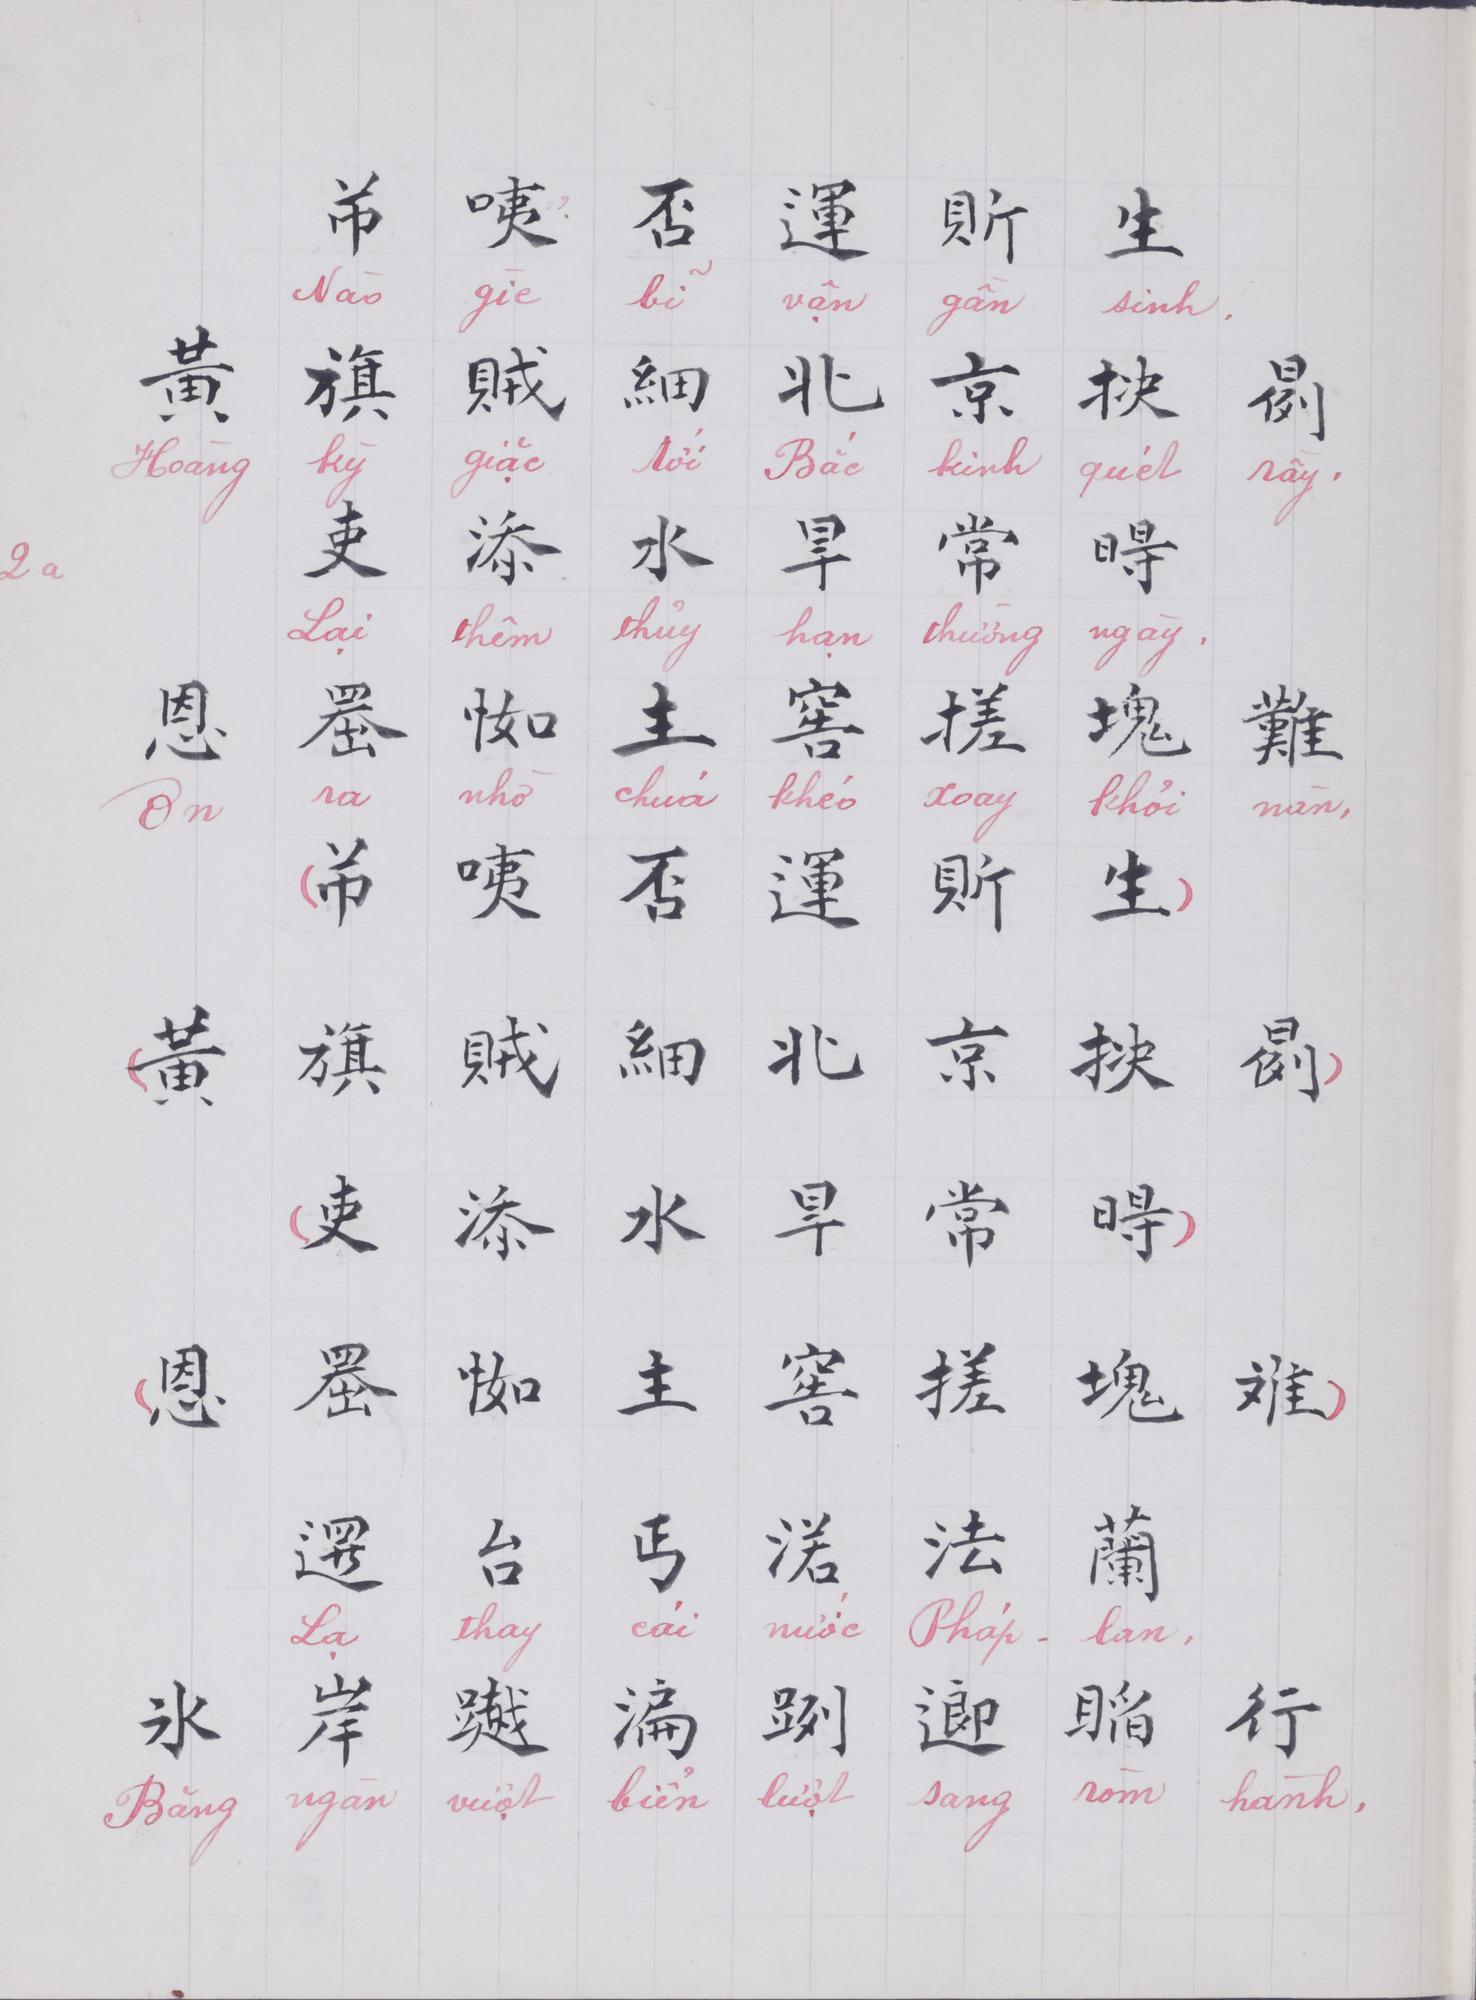 吊 咦 否 運 貯 生
Nào giè bĩ vận gần sinh.
黃 旗 賊 細 北 京 抉
Hoàng kỳ giặc tới Bắc kinh quét rầy.
吏 添 水 旱 常 㝵
2a
Lại thêm thủy hạn thường ngày.
恩 𠚢 怓 主 窖 搓 塊 難
Ơn ra nhờ chúa khéo xoay khỏi nàn,
(吊 咦 否 運 貯 生)
(黃 旗 賊 細 北 京 抉)
(吏 添 水 旱 常)
(恩 主 窖 搓 塊 难)
逻 台 丐 渃 法 蘭
Lạ thay cái nước Pháp - lan,
氷 岸 𣾃 迎 行
Băng ngàn vượt biển lướt sang ròm hành,